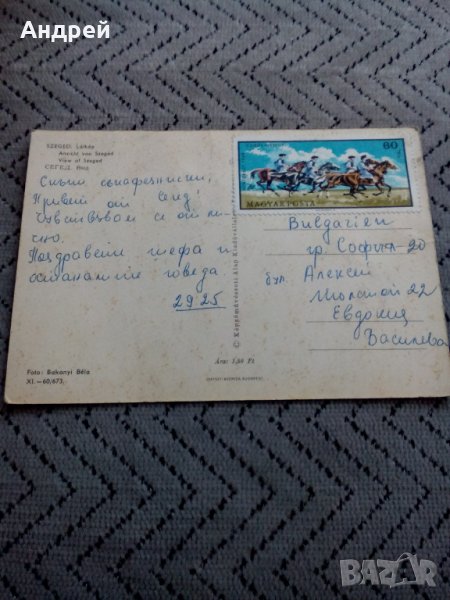 Андрей
SZEGED. Látkép
Ansicht von Szeged
View of Szeged
СЕГЕД. Вид
60
MAGYAR POSTA
Скъпи
Привет от
Чувствувам се от
сно.
Поздравени шефа и
останалите говеда
2925
Bulgarien
гр. София - 20
бул. Алексей
Толстой 22
Евдокия
Василева
© Képzőművészeti Alap Kiadóvállalata
Ára: 1,50 Ft
Foto: Bakonyi Béla
XI.—60/673.
BAZAR